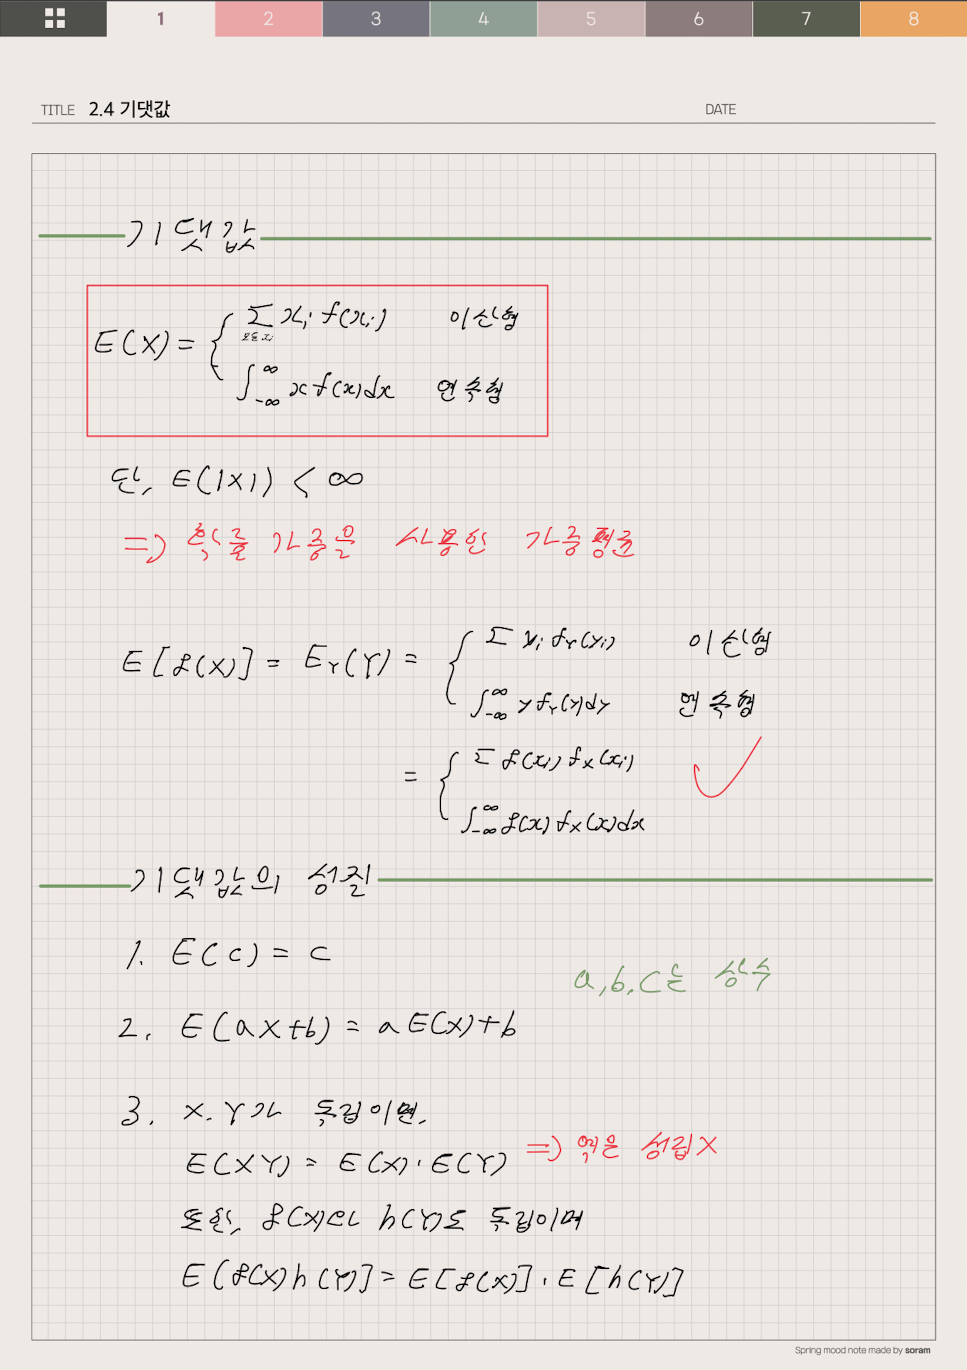 1 2 3 4 5 6 7 8
TITLE 2.4 기댓값 DATE
기댓값
E(X) = { ∑ xᵢ f(xᵢ) 이산형
모든 xᵢ
∫_{-∞}^{∞} x f(x) dx 연속형
단, E(|X|) < ∞
=> 확률 가중을 사용한 가중평균
E[g(X)] = E_Y(Y) = { ∑ yᵢ f_Y(yᵢ) 이산형
∫_{-∞}^{∞} y f_Y(y) dy 연속형
= { ∑ g(xᵢ) f_X(xᵢ)
∫_{-∞}^{∞} g(x) f_X(x) dx
기댓값의 성질
1. E(c) = c
a, b, c는 상수
2. E(aX+b) = aE(X)+b
3. X, Y가 독립이면,
E(XY) = E(X)·E(Y) => 역은 성립X
또한, g(X)와 h(Y)도 독립이며
E(g(X)h(Y)] = E[g(X)]·E[h(Y)]
Spring mood note made by soram